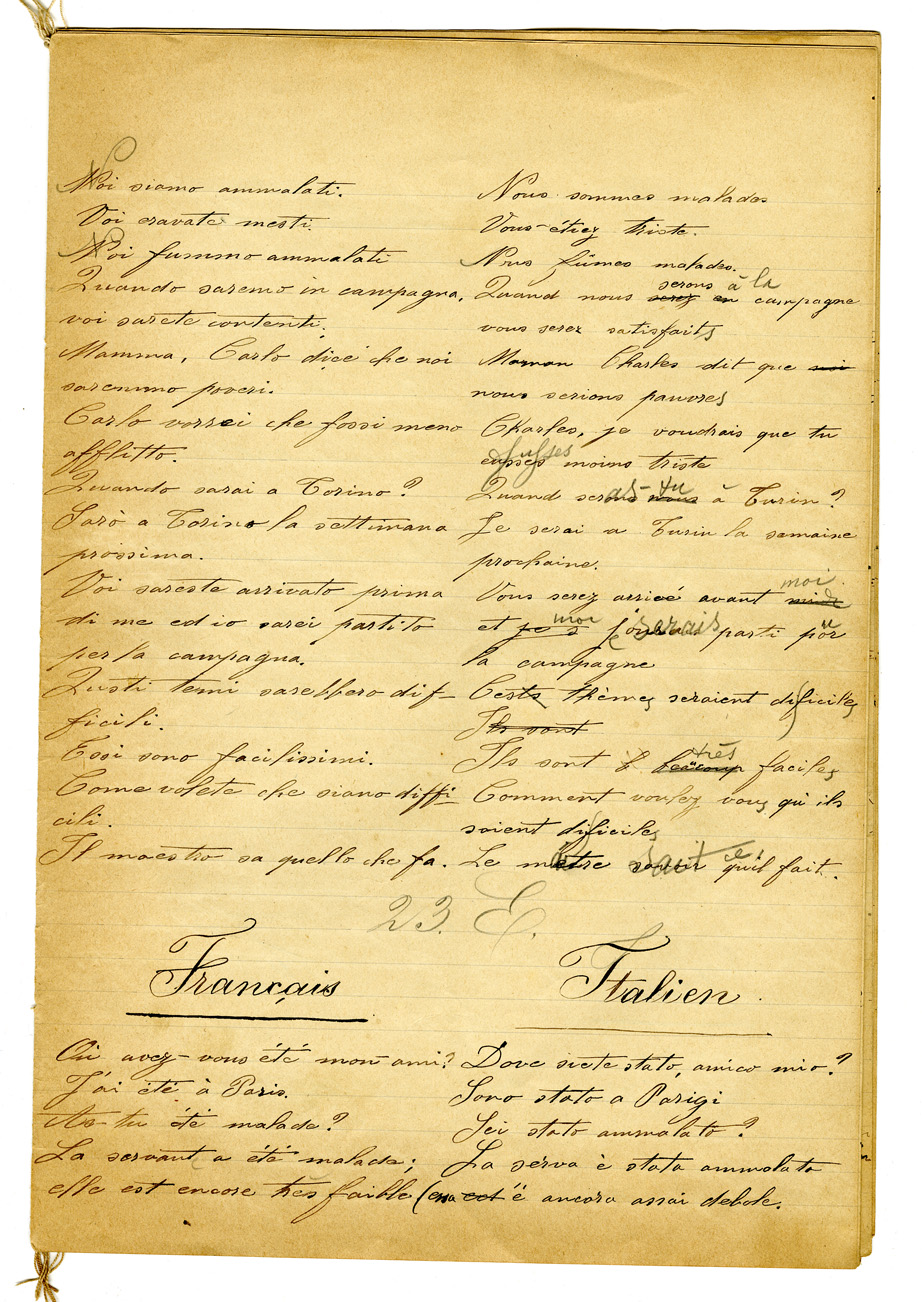 Noi siamo ammalati.
Voi eravate mesti.
Noi fummo ammalati
Quando saremo in campagna,
voi sarete contenti.
Mamma, Carlo dicé che noi
saremmo poveri.
Carlo vorrei che fossi meno
afflitto.
Quando sarai a Torino?
Sarò a Torino la settimana
prossima.
Voi sareste arrivato prima
di me ed io sarei partito
per la campagna.
Questi temi sarebbero dif-
ficili.
Essi sono facilissimi.
Come volete che siano diffi-
cili.
Il maestro sa quello che fa.
Nous sommes malades
Vous-étiez triste.
Nous fûmes malades.
serons à la
Quand nous serez en campagne
vous serez satisfaits
Maman Charles dit que noi
nous serions pauvres
Charles, je voudrais que tu
fusses
eusses moins triste
as-tu
Quand serons nous à Turin?
Je serai a Turin la semaine
prochaine.
moi
Vous serez arrivé avant
moi serais
et je parti pour
la campagne
Cests thèmes seraient dificiles
Ils sont
très
Ils sont beacoup faciles
Comment voulez vous qu'ils
soient dificiles
Le metre savoir qu'il fait.
23. E.
Français
Italien
Où avez-vous été mon ami?
J'ai été à Paris.
As tu été malade?
La servant a été malade;
elle est encore très faible
Dove siete stato, amico mio?
Sono stato a Parigi
Sei stato ammalato?
La sérva è stata ammalata
(ena est è ancora assai debole.